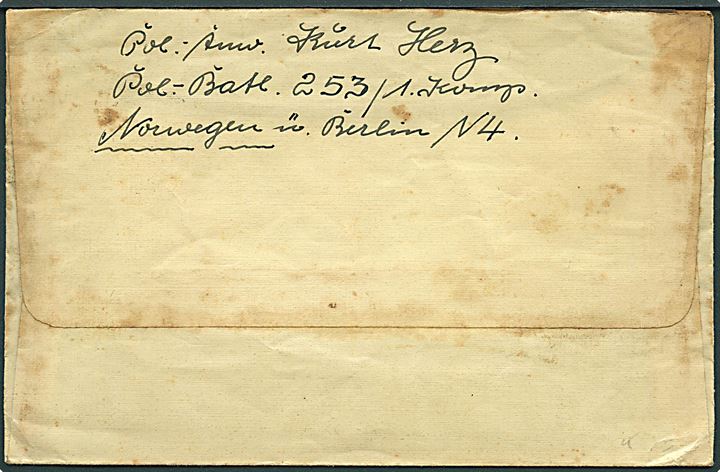 Pol.-Anw. Kurt Herz
Pol-Batl. 253/1. Komp.
Norwegen ü. Berlin N4.